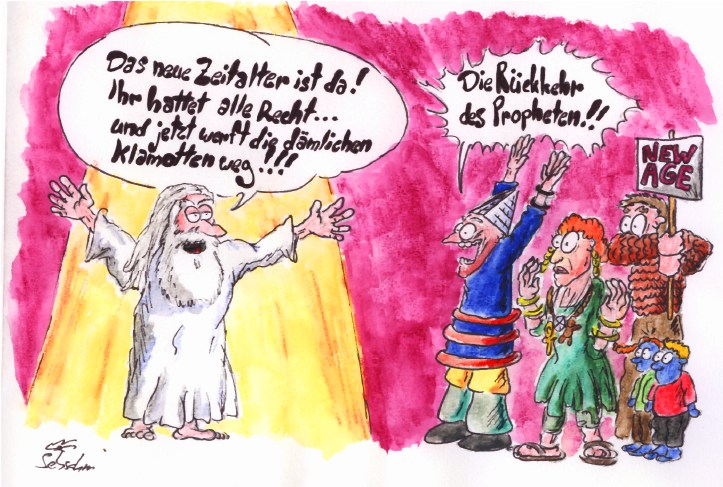 Das neue Zeitalter ist da!
Ihr hattet alle Recht...
und jetzt werft die dämlichen
Klamotten weg!!!
Die Rückkehr
des Propheten!!
NEW
AGE